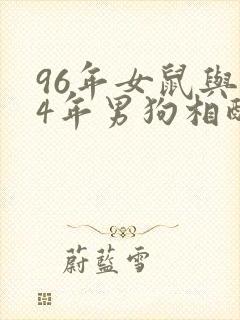 96年女鼠與
4年男狗相配
蔚藍雪